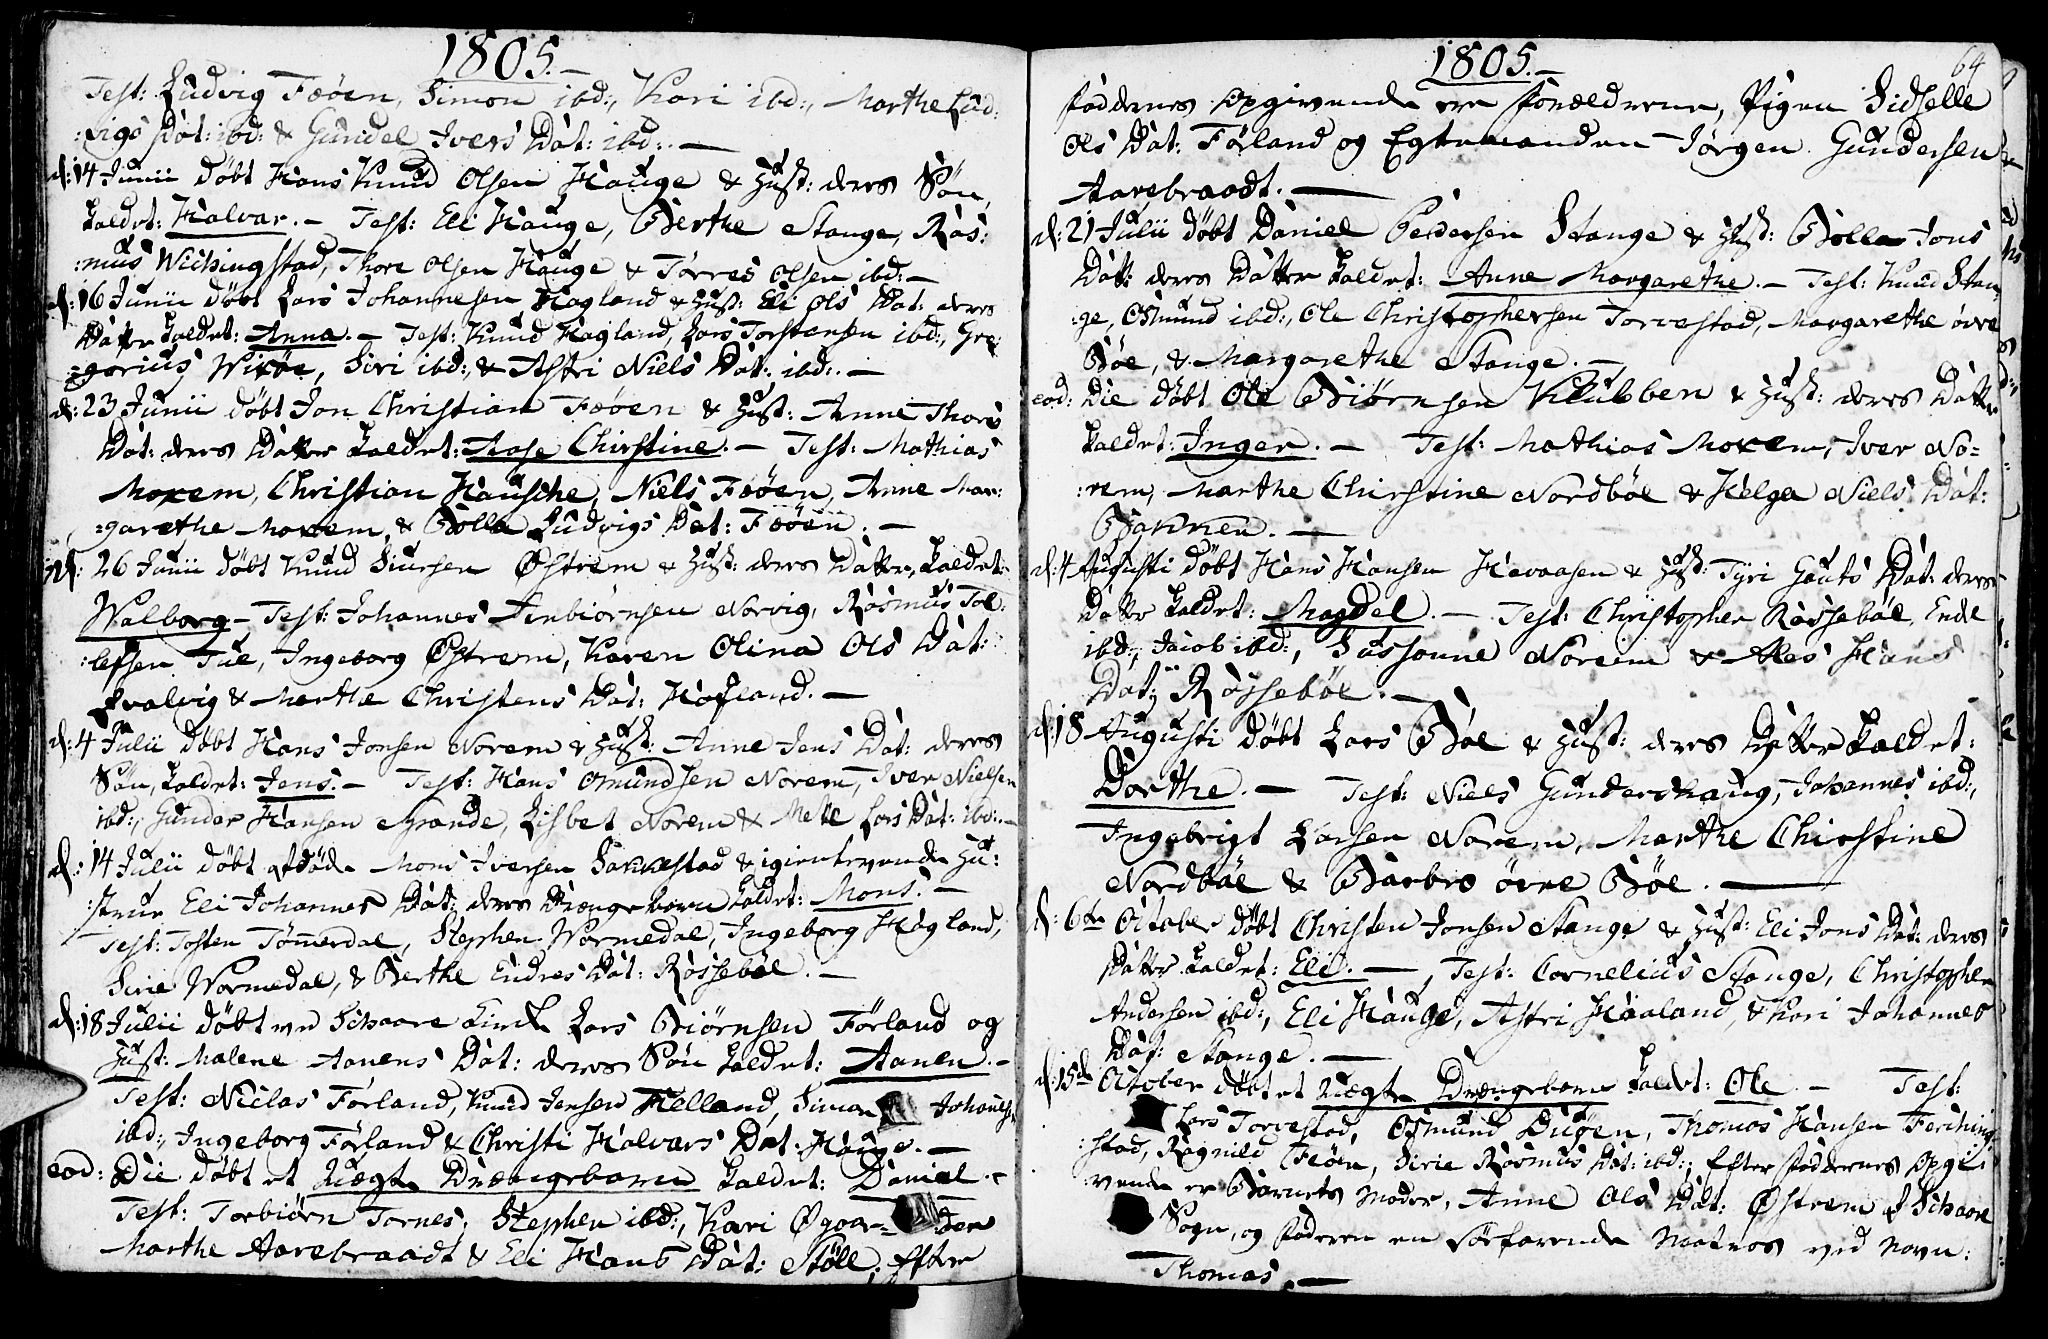 1805.
Test: Ludvig Feöen, Simon ibd:, Kari ibd:, Marthe Lud:
:vigs Dat: ibd: & Gundel Ivers Dat: ibd:. —
d: 14 Junii döbt Hans Knud Olsen Hauge & Hust: deres Sön,
kaldet: Halvar. — Test: Eli Hauge, Berthe Stange, Ras:
:mus Wichingstad, Thore Olsen Hauge & Törres Olsen ibd: —
d: 16 Junii döbt Lars Johannesen Hagland & Hust: Eli Ols Dat: deres
Datter kaldet: Anna. — Test: Knud Hagland, Lars Torstensen ibd:, Gre:
:gorius Wixöe, Siri ibd:, & Astri Niels Dat: ibd:. —
d: 23 Junii döbt Jon Christian Feöen & Hust: Anne Thors
Dat: deres Datter kaldet: Aase Chirstine. — Test: Mathias
Moxem, Christian Hausche, Niels Feöen, Anne Mar:
:garethe Moxem, & Bolla Ludvigs Dat: Feöen. —
d: 26 Junii döbt Knud Siursen Östrem & Hust: deres Datter, kaldet:
Walborg — Test: Johannes Arnbiörnsen Norvig, Rasmus Tol:
:lefsen Tue, Ingeborg Östrem, Karen Olina Ols Dat:
Qvalvig & Marthe Christens Dat: Hofland. —
d: 4 Julii döbt Hans Jonsen Norem & Hust: Anne Jens Dat: deres
Sön, kaldet: Jens. — Test: Hans Omundsen Norem, Iver Nielsen
ibd:, Gunder Hansen Grande, Lisbet Norem & Mette Lars Dat: ibd:. —
d: 14 Julii döbt afdöde Mons Iversen Saxestad & igientevende Hu:
:strue Eli Johannes Dat: deres Drængebarn kaldet: Mons. —
Test: Tosten Tömerdal, Stephen Wormedal, Ingeborg Hagland,
Sirie Wormedal, & Berthe Endres Dat: Rosseböe. —
d: 18 Julii döbt ved Schaare Kirke Lars Biörnsen Förland og
Hust: Malene Aanens Dat: deres Sön kaldet: Aanen. —
Test: Niclas Förland, Knud Jensen Helland, Simon Johannes
ibd:, Ingeborg Förland & Christi Halvars Dat. Hauge. —
eod: Die döbt et Uægte Drængebarn kaldet: Daniel. —
Test: Torbiörn Tornes, Stephen ibd:, Kari Ögaar= den
Marthe Aarebraadt & Eli Hans Dat: Stölle; Efter
1805.
64
Faddernes Opgivende ere Forældrene, Pigen Sidselle
Ols Dat: Förland og Egtemanden Jörgen Gundersen
Aarebraadt. —
d: 21 Julii döbt Daniel Pedersen Stange & Hust: Bolla Jons
Dat: deres Datter kaldet: Anne Margarethe. — Test: Knud Stan:
:ge, Osmund ibd:, Ole Christophersen Torvestad, Margarethe övre
Böe, & Margarethe Stange. —
eod: Die döbt Ole Biörnsen Klubben & Hust: deres Datter
kaldet: Inger. — Test: Mathias Moxem, Iver No=
:rem, Marthe Chirstine Nordböe & Helga Niels Dat:
Bakken. —
d: 4 Augusti döbt Hans Hansen Havaasen & Hust: Tyri Gauts Dat: deres
Datter kaldet: Magdel. — Test: Christopher Rosseböe, Endre
ibd:, Jacob ibd:, Sussanne Noreim & Ales Hans
Dat: Rosseböe. —
d: 18 Augusti döbt Lars Böe & Hust: deres Datter kaldet:
Dorthe. — Test: Niels Gunderskaug, Johannes ibd:,
Ingebrigt Larsen Norem, Marthe Chirstine
Nordböe & Barbro övre Böe. —
d: 6te October döbt Christen Jonsen Stange & Hust: Eli Jons Dat: deres
Datter kaldet: Eli. —, Test: Cornelius Stange, Christopher
Andersen ibd:, Eli Hauge, Astri Haaland, & Kari Johannes
Dat: Stange. —
d: 15de October döbt et Uægte Drængebarn kaldet: Ole — Test:
Lars Torvestad, Osmund Dusöen, Thomas Hansen Ferching:
:stad, Ragnild Feöen, Sirie Rasmus Dat: ibd:; Efter Faddernes Opgi:
:vende er Barnets Moder, Anne Ols Dat: Östrem af Schaare
Sogn, og Faderen en Sörfarende Matros ved Navn:
Thomas. —